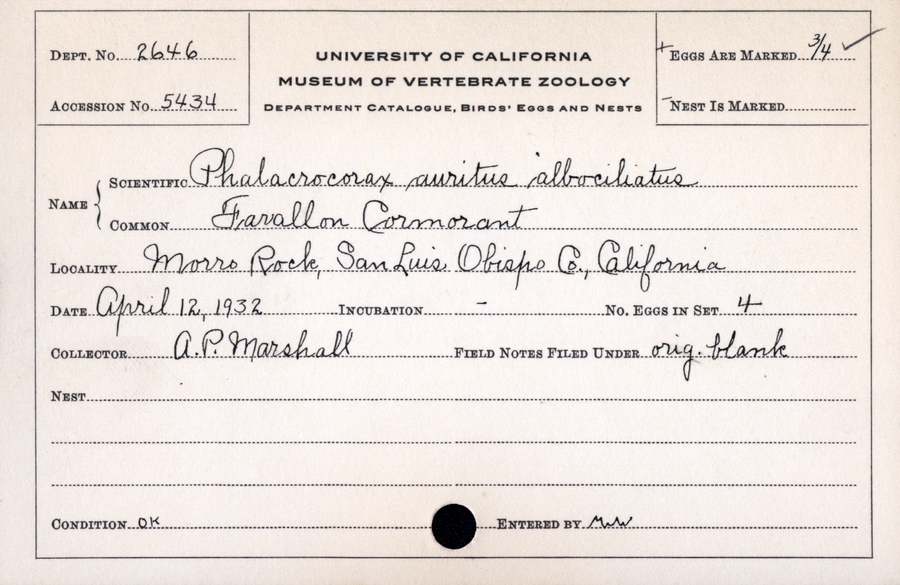 DEPT. NO. 2646
ACCESSION NO. 5434
UNIVERSITY OF CALIFORNIA
MUSEUM OF VERTEBRATE ZOOLOGY
DEPARTMENT CATALOGUE, BIRDS' EGGS AND NESTS
+ EGGS ARE MARKED 3/4 ✓
- NEST IS MARKED
NAME
SCIENTIFIC Phalacrocorax auritus albociliatus
COMMON Farallon Cormorant
LOCALITY Morro Rock, San Luis Obispo Co., California
DATE April 12, 1932 INCUBATION - NO. EGGS IN SET 4
COLLECTOR A.P. Marshall FIELD NOTES FILED UNDER orig. blank
NEST
CONDITION OK ENTERED BY